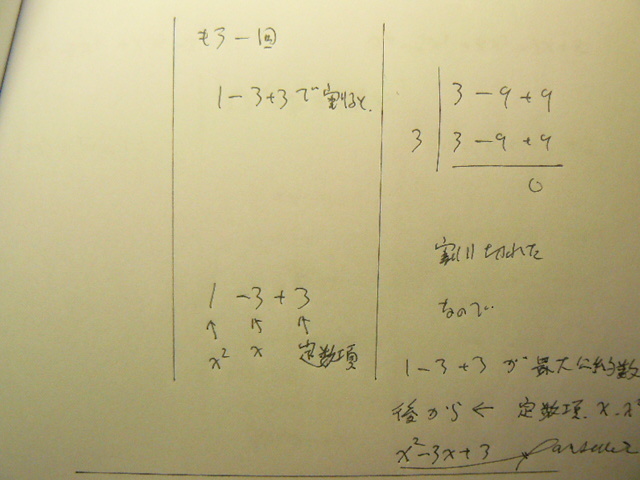 もう一回
1-3+3で割ると、
1 -3+3
↑ ↑ ↑
x² x 定数項
3-9+9
3 3-9+9
0
割り切れた
なので
1-3+3が最大公約数
後から ← 定数項、x、x²
x²-3x+3 answer